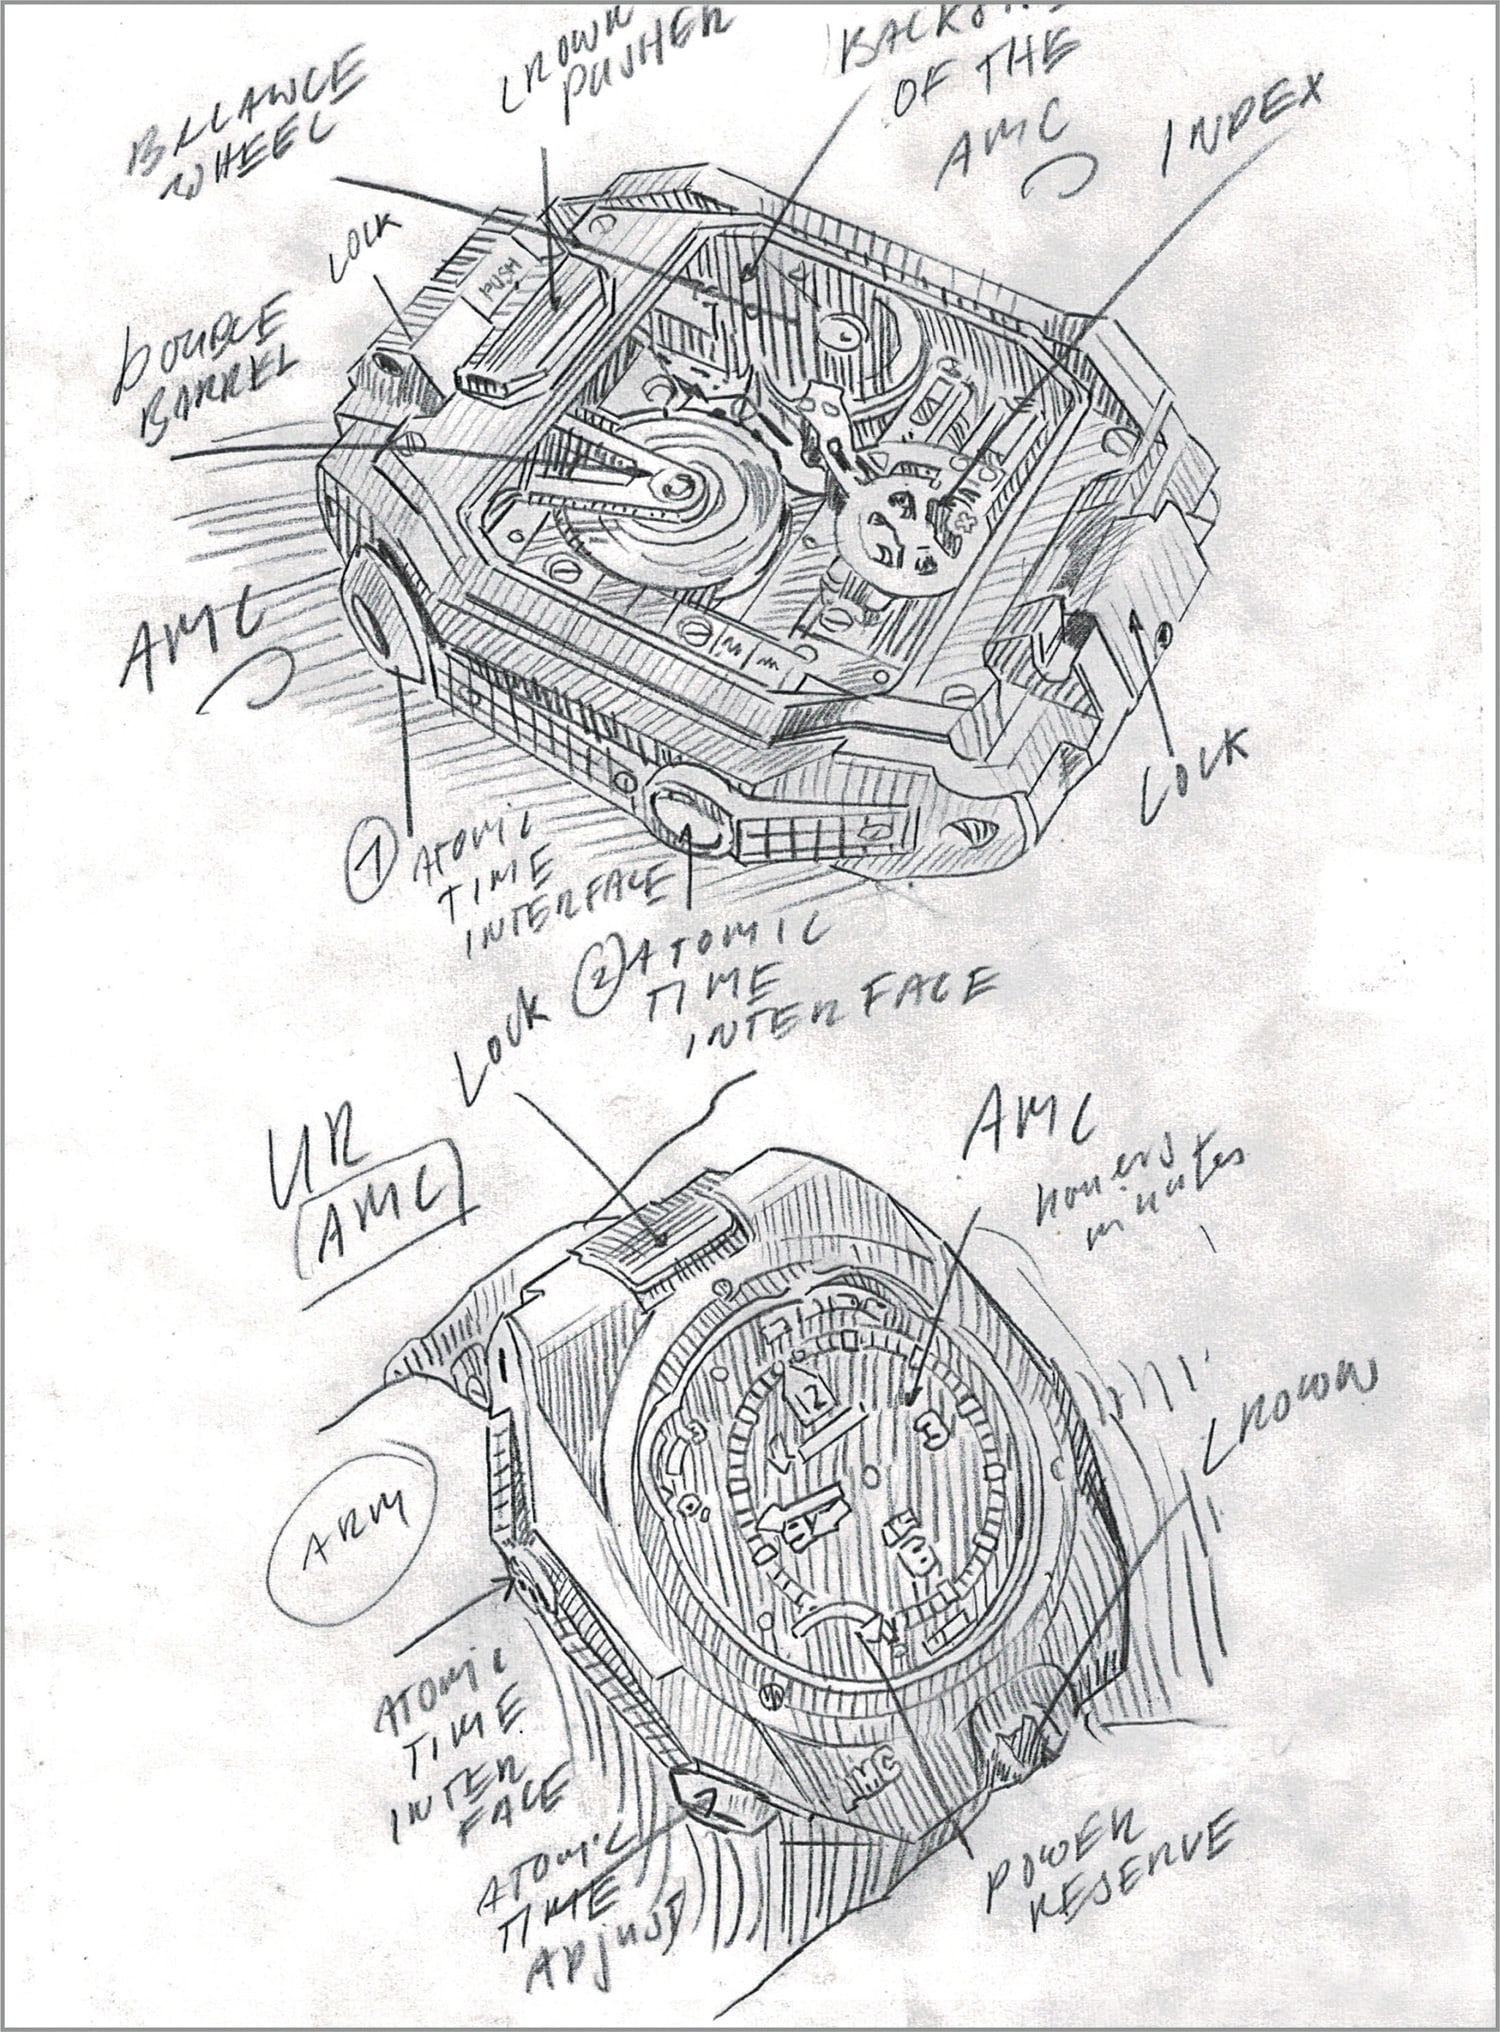 BALLANCE
WHEEL
CROWN
PUSHER
OF THE
AMC
INDEX
LOCK
PUSH
DOUBLE
BARREL
AMC
LOCK
1 ATOMIC
TIME
INTERFACE
2 ATOMIC
TIME
INTERFACE
LOCK
UR
AMC
AMC
houers
minutes
12
3
CROWN
ARM
ATOMIC
TIME
INTER
FACE
AMC
ATOMIC
TIME
ADJUST
POWER
RESERVE